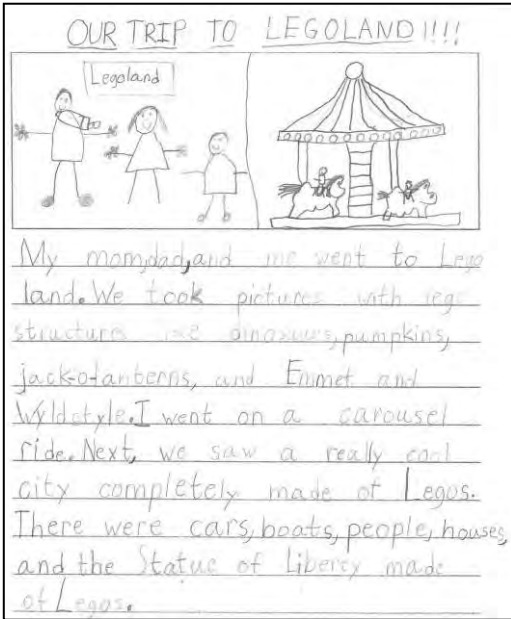 OUR TRIP TO LEGOLAND!!!!
Legoland
My mom,dad,and me went to Lego
land. We took pictures with lego
structures like dinosaurs, pumpkins,
jack-o-lanterns, and Emmet and
Wyldstyle. I went on a carousel
ride. Next, we saw a really cool
city completely made of Legos.
There were cars, boats, people, houses,
and the Statue of Liberty made
of Legos.